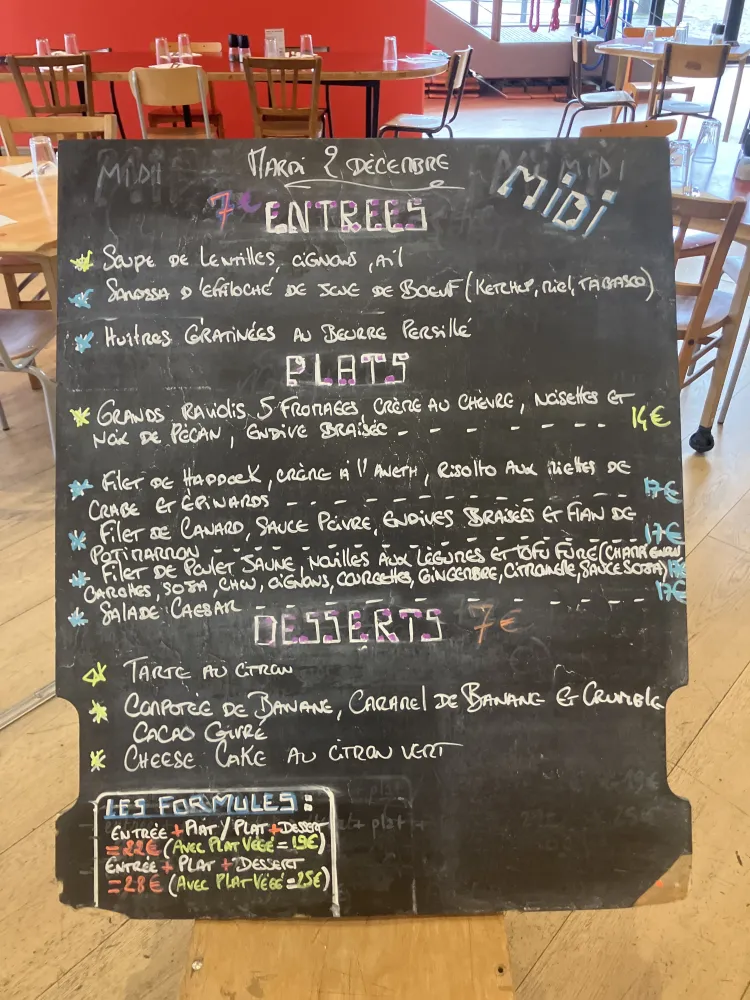 MARDI 2 DÉCEMBRE
MIDI MIDI
7€ ENTREES
* SOUPE DE LENTILLES, OIGNONS, AIL
* SAMOSSA D'EFFILOCHÉ DE JOUE DE BOEUF (KETCHUP, MIEL, TABASCO)
* HUITRES GRATINÉES AU BEURRE PERSILLÉ
PLATS
* GRANDS RAVIOLIS 5 FROMAGES, CRÈME AU CHÈVRE, NOISETTES ET
NOIX DE PÉCAN, ENDIVE BRAISÉE - - - - - - - 14€
* FILET DE HADDOCK, CRÈME À L'ANETH, RISOTTO AUX RIETTES DE
CRABE ET ÉPINARDS - - - - - - - - - - 17€
* FILET DE CANARD, SAUCE POIVRE, ENDIVES BRAISÉES ET FLAN DE
POTIMARRON - - - - - - - - - - - 17€
* FILET DE POULET JAUNE, NOUILLES AUX LÉGUMES ET TOFU FUMÉ (CHAMPIGNON
CAROTTES, SOJA, CHOU, OIGNONS, COURGETTES, GINGEMBRE, CITRONELLE, SAUCE SOJA) 17€
* SALADE CAESAR - - - - - - - - - - - 17€
DESSERTS 7€
* TARTE AU CITRON
* COMPOTÉE DE BANANE, CARAMEL DE BANANE ET CRUMBLE
CACAO GIVRÉ
* CHEESE CAKE AU CITRON VERT
LES FORMULES:
ENTRÉE + PLAT / PLAT + DESSERT
= 22€ (AVEC PLAT VÉGÉ = 19€)
ENTRÉE + PLAT + DESSERT
= 28€ (AVEC PLAT VÉGÉ = 25€)